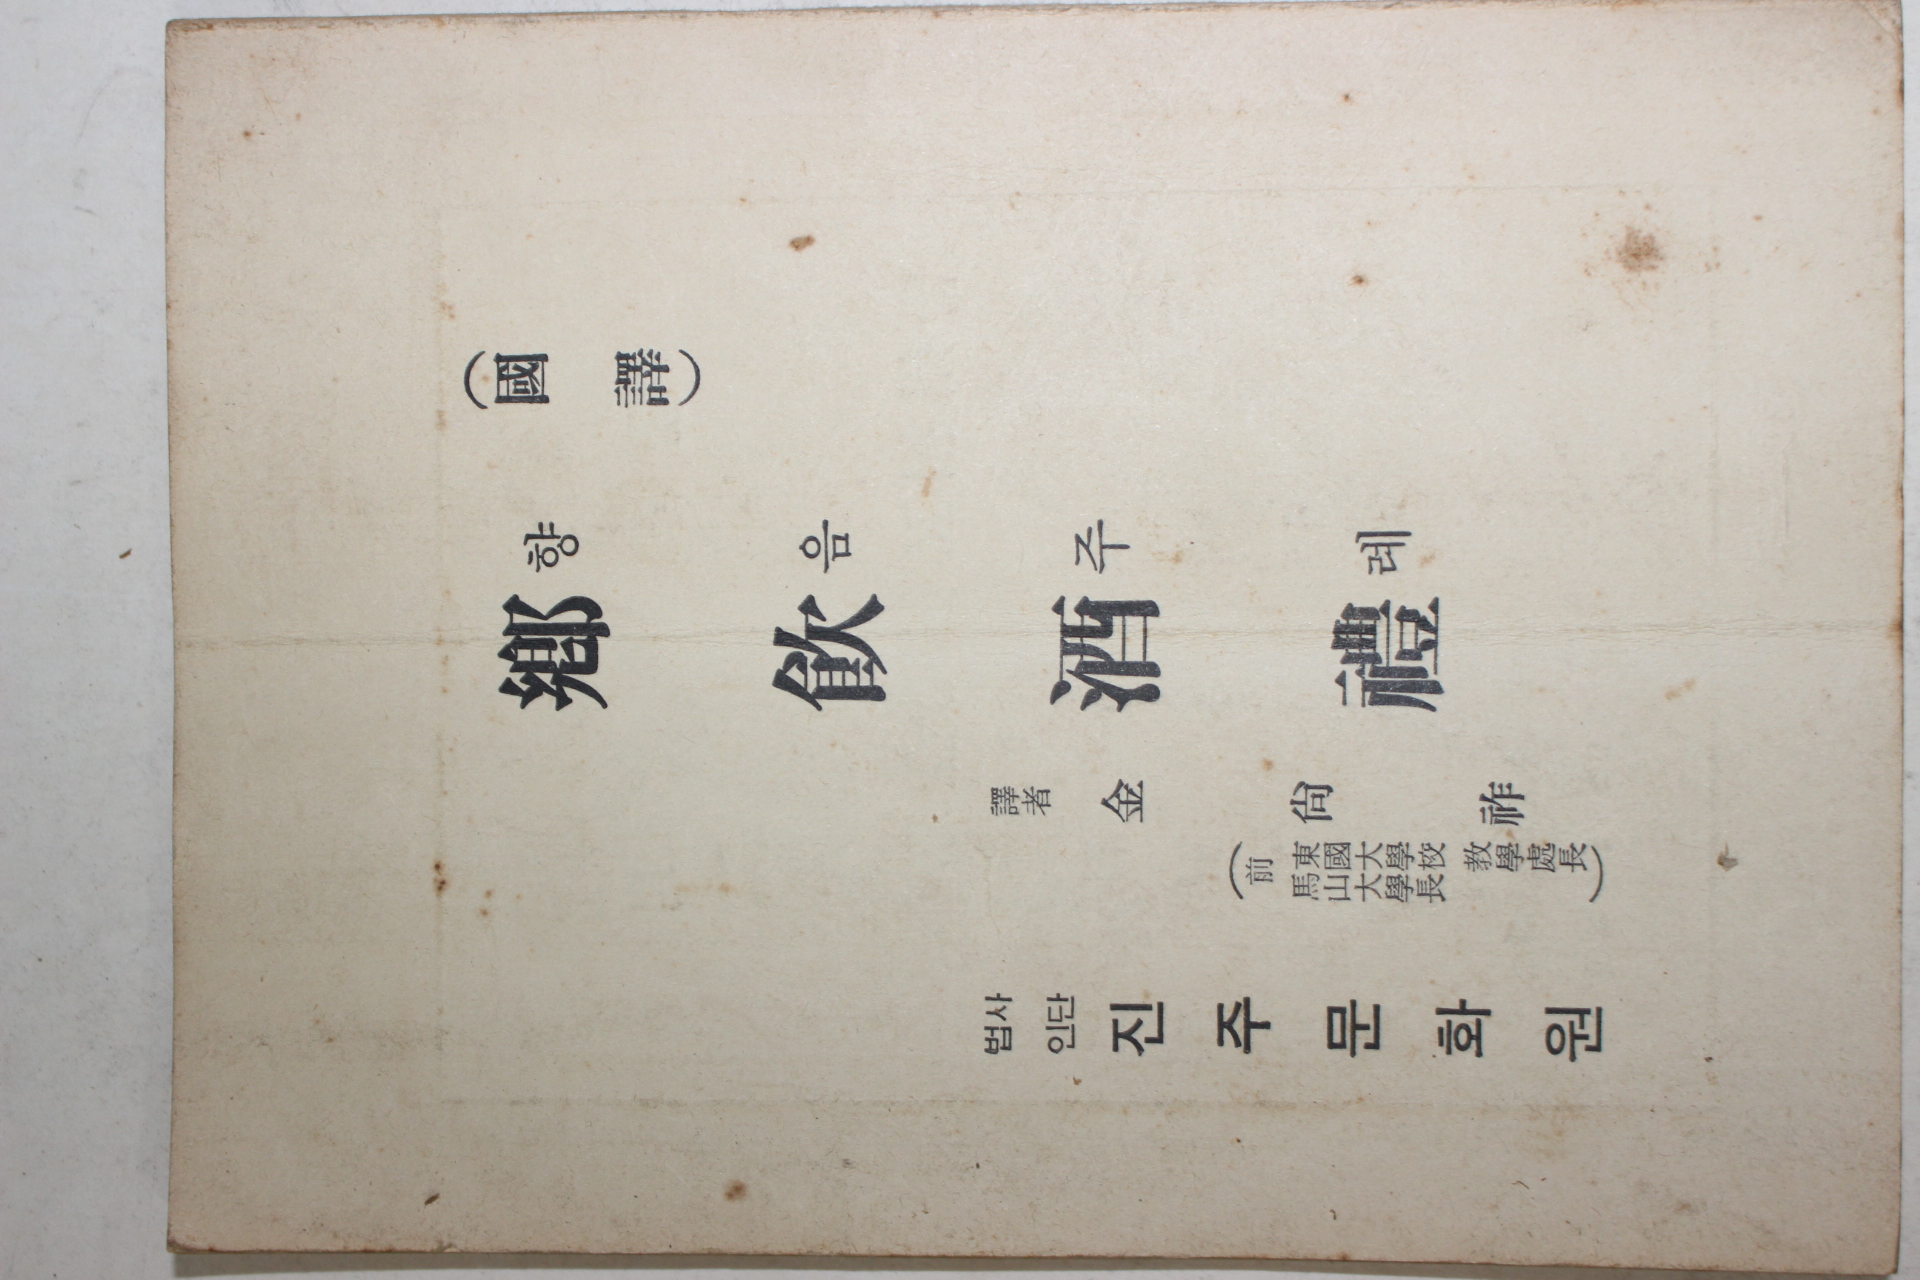 (國譯)
향음주례
鄕飮酒禮
譯者 金尙祚
(前 東國大學校 教學處長
馬山大學長)
사단
법인 진주문화원